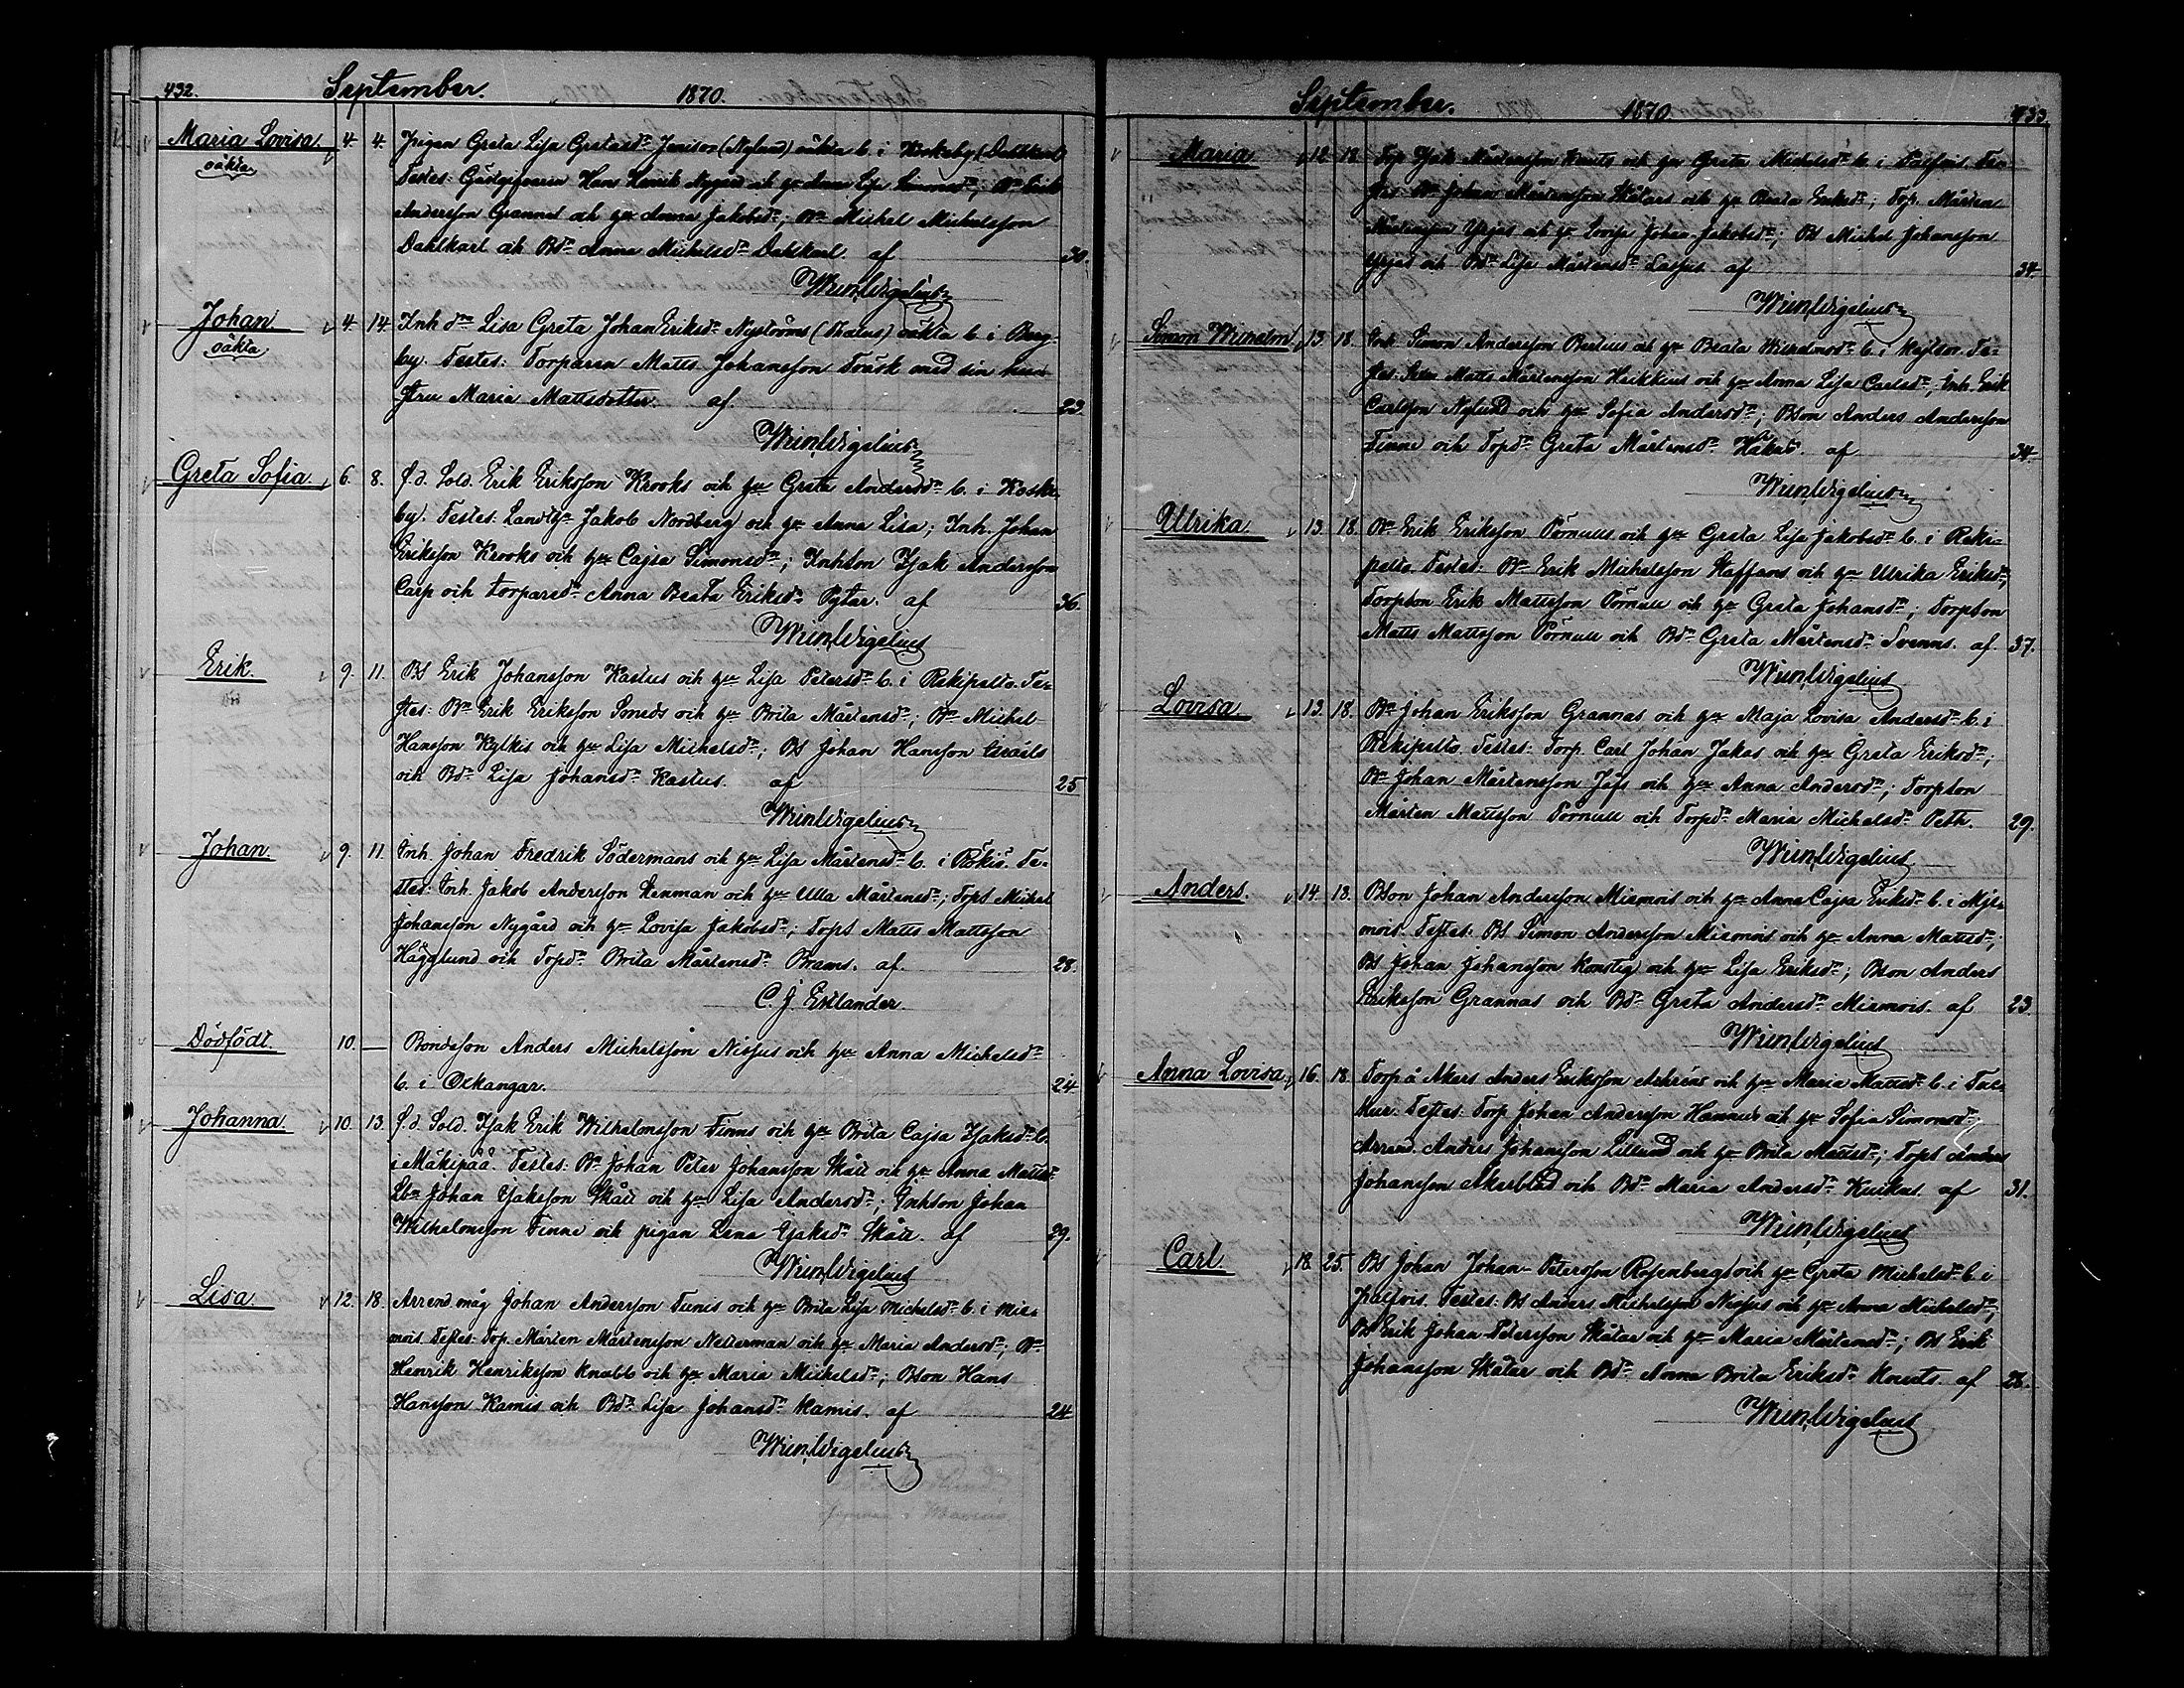 432. September. 1870.
Maria Lovisa. 4. 4. Pigan Greta Lisa Gretasdr (Nylund) oäkta b. i Kirkeby, Dahlkarl
oäkta Testes: Gästgifvaren Hans Henrik Nygård och hu Anna Lisa Simonsdr; Bn Erik
Andersson Grannas och hu Anna Jakobsdr; Bn Michel Michelsson
Dahlkarl och Bdr Anna Michelsdr Dahlkarl. af 30.
Wm Wigelius
Johan 4. 14. Inh dr Lisa Greta Johan Eriksdr Nyströms (Thatus) oäkta b. i Berg-
oäkta by. Testes: Torparen Matts Johansson Träsk med sin hu-
stru Maria Mattsdotter. af 23.
Wm Wigelius
Greta Sofia. 6. 8. f.d. Sold. Erik Eriksson Krooks och hu Greta Andersdr b. i Koske-
by. Testes: Jakob Nordberg och hu Anna Lisa; Inh. Johan
Eriksson Krooks och hu Cajsa Simonsdr; Inhson Isak Andersson
Carp och torparedr Anna Beata Eriksdr Pytar. af 36.
Wm Wigelius
Erik. 9. 11. BS Erik Johansson Kastus och hu Lisa Petersdr b. i Rekipelto. Te-
stes: Bn Erik Eriksson Smeds och hu Brita Mårtensdr; Bn Michel
Hansson Kylkis och hu Lisa Michelsdr; BS Johan Hansson Israels
och Bdr Lisa Johansdr Kastus. af 25
Wm Wigelius
Johan. 9. 11. Inh. Johan Fredrik Södermans och hu Lisa Mårtensdr b. i Rökiö. Te-
stes: Inh. Jakob Andersson Stenman och hu Ulla Mårtensdr; Tops Michel
Johansson Nygård och hu Lovisa Jakobsdr; Tops Matts Mattsson
Hägglund och Topdr Brita Mårtensdr Brams. af. 28.
C. J. Estlander.
Dödfödt. 10. — Bondeson Anders Michelsson Nissus och hu Anna Michelsdr
b. i Olkangar. 24.
Johanna. 10. 13. f.d. Sold. Isak Erik Wilhelmsson Finns och hu Brita Cajsa Isaksdr b.
i Mäkipää. Testes: Bn Johan Peter Johansson Skått och hu Anna Mattsdr
Johan Isaksson Skått och hu Lisa Andersdr; Inhson Johan
Wilhelmsson Finne och pigan Lena Isaksdr Skått. af 29.
Wm Wigelius
Lisa. 12. 18. Arrend. måg Johan Andersson Tunis och hu Brita Lisa Michelsdr b. i Mie-
mois. Testes: Top. Mårten Mårtensson Nelterman och hu Maria Andersdr; Bn
Henrik Henriksson Knubb och hu Maria Michelsdr; Bson Hans
Hansson Kamis och Bdr Lisa Johansdr Kamis. af 24
Wm Wigelius
September. 1870. 433.
Maria 12. 18. Top Isak Mårtensson Knuts och hu Greta Michelsdr b. i Te-
stes: Bn Johan Mårtensson Skåtars och hu Beata Eriksdr; Top. Mårten
Mårtensson och hu Lovisa Johan Jakobsdr; BS Michel Johansson
och Bdr Lisa Mårtensdr Lassus. af 34.
Wm Wigelius
Simon Wilhelm 13. 18. Inh. Simon Andersson Bertius och hu Beata Wilhelmsdr b. i Te-
stes: Matts Mårtensson Heikkius och hu Anna Lisa Carlsdr; Inh. Erik
Carlsson Nylund och hu Sofia Andersdr; Bson Anders Andersson
Finne och Topdr Greta Mårtensdr Håkas. af 34.
Wm Wigelius
Ulrika 13. 18. Bn Erik Eriksson Törnulls och hu Greta Lisa Jakobsdr b. i Reki-
pelto. Testes: Bn Erik Michelsson Staffans och hu Ulrika Eriksdr;
Torpson Erik Mattsson Törnull och hu Greta Johansdr; Torpson
Matts Mattsson Törnull och Bdr Greta Mårtensdr Svenns. af. 37.
Wm Wigelius
Lovisa 13. 18. Bn Johan Eriksson Grannas och hu Maja Lovisa Andersdr b. i
Rekipelto. Testes: Torp. Carl Johan Jakas och hu Greta Eriksdr;
Bn Johan Mårtensson Jåfs och hu Anna Andersdr; Torpson
Mårten Mattsson Törnull och Torpdr Maria Michelsdr Peth. 29.
Wm Wigelius
Anders. 14. 18. Bson Johan Andersson Miemois och hu Anna Cajsa Eriksdr b. i Mie-
mois. Testes: BS Simon Andersson Miemois och hu Anna Mattsdr;
BS Johan Johansson Konstig och hu Lisa Eriksdr; Bson Anders
Eriksson Grannas och Bdr Greta Andersdr Miemois. af 23.
Wm Wigelius
Anna Lovisa 16. 18. Torp å Akars Anders Eriksson Achréns och hu Maria Mattsdr b. i Tuc-
kur. Testes: Torp Johan Andersson Hannus och hu Sofia Simonsdr
Arrend. Anders Johansson Lillund och hu Brita Mattsdr; Tops Anders
Johansson Åkerblad och Bdr Maria Andersdr Kuikus. af 31.
Wm Wigelius
Carl 18. 25. BS Johan Johan-Petersson Rosenberg och hu Greta Michelsdr b. i
Palfvis. Testes: BS Anders Michelsson Nissus och hu Anna Michelsdr;
BS Erik Johan-Petersson Skåtar och hu Maria Mårtensdr; BS Erik
Johansson Skåtar och Bdr Anna Brita Eriksdr Knuts. af 26.
Wm Wigelius